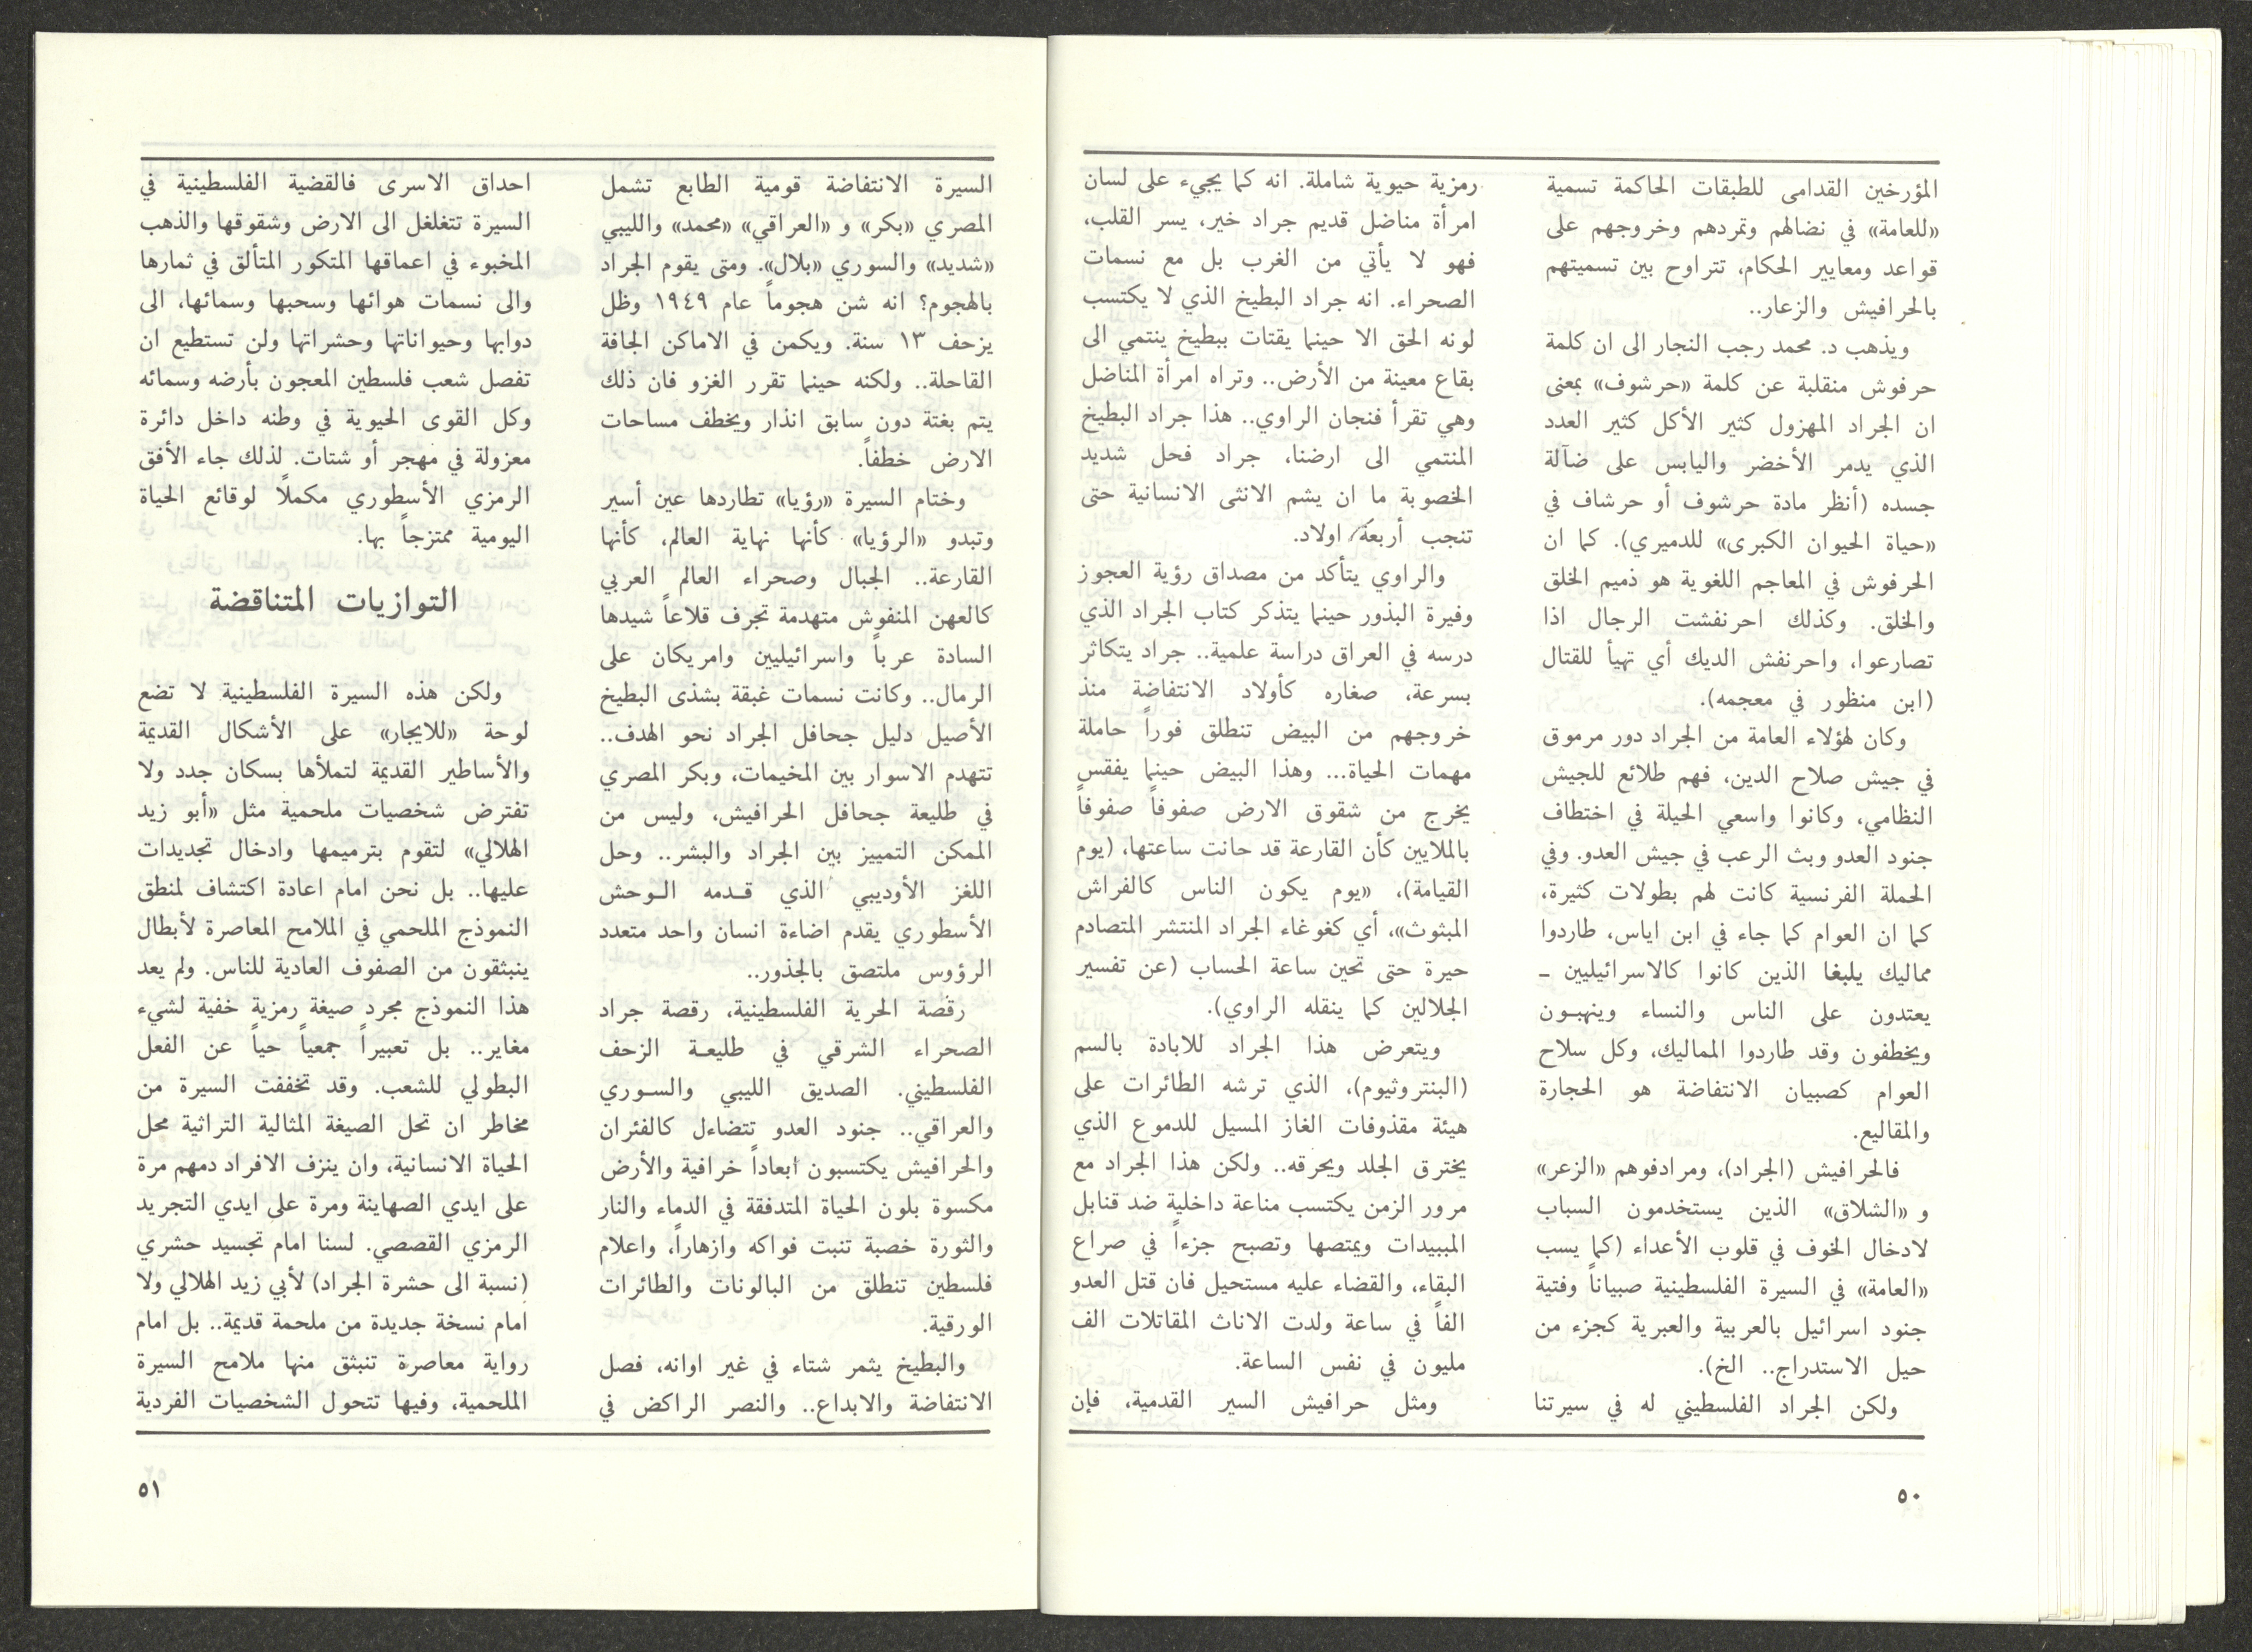 المؤرخين القدامى للطبقات الحاكمة تسمية
«للعامة» في نضالهم وتمردهم وخروجهم على
قواعد ومعايير الحكام، تتراوح بين تسميتهم
بالحرافيش والزعار..
ويذهب د. محمد رجب النجار الى ان كلمة
حرفوش منقلبة عن كلمة «حرشوف» بمعنى
ان الجراد المهزول كثير الأكل كثير العدد
الذي يدمر الأخضر واليابس على ضآلة
جسده (أنظر مادة حرشوف أو حرشاف في
«حياة الحيوان الكبرى» للدميري). كما ان
الحرفوش في المعاجم اللغوية هو ذميم الخلق
والخلق. وكذلك احرنفشت الرجال اذا
تصارعوا، واحرنفش الديك أي تهيأ للقتال
(ابن منظور في معجمه).
وكان لهؤلاء العامة من الجراد دور مرموق
في جيش صلاح الدين، فهم طلائع للجيش
النظامي، وكانوا واسعي الحيلة في اختطاف
جنود العدو وبث الرعب في جيش العدو. وفي
الحملة الفرنسية كانت لهم بطولات كثيرة،
كما ان العوام كما جاء في ابن اياس، طاردوا
مماليك يلبغا الذين كانوا كالاسرائيليين -
يعتدون على الناس والنساء وينهبون
ويخطفون وقد طاردوا المماليك، وكل سلاح
العوام كصبيان الانتفاضة هو الحجارة
والمقاليع.
فالحرافيش (الجراد)، ومرادفوهم «الزعر»
و «الشلاق» الذين يستخدمون السباب
لادخال الخوف في قلوب الأعداء (كما يسب
«العامة» في السيرة الفلسطينية صبياناً وفتية
جنود اسرائيل بالعربية والعبرية كجزء من
حيل الاستدراج.. الخ).
ولكن الجراد الفلسطيني له في سيرتنا
رمزية حيوية شاملة. انه كما يجيء على لسان
امرأة مناضل قديم جراد خير، يسر القلب،
فهو لا يأتي من الغرب بل مع نسمات
الصحراء. انه جراد البطيخ الذي لا يكتسب
لونه الحق الا حينما يقتات ببطيخ ينتمي الى
بقاع معينة من الأرض.. وتراه امرأة المناضل
وهي تقرأ فنجان الراوي.. هذا جراد البطيخ
المنتمي الى ارضنا، جراد فحل شديد
الخصوبة ما ان يشم الانثى الانسانية حتى
تنجب أربعة اولاد.
والراوي يتأكد من مصداق رؤية العجوز
وفيرة البذور حينما يتذكر كتاب الجراد الذي
درسه في العراق دراسة علمية.. جراد يتكاثر
بسرعة، صغاره كأولاد الانتفاضة منذ
خروجهم من البيض تنطلق فوراً حاملة
مهمات الحياة... وهذا البيض حينما يفقس
يخرج من شقوق الارض صفوفاً صفوفاً
بالملايين كأن القارعة قد حانت ساعتها، (يوم
القيامة)، «يوم يكون الناس كالفراش
المبثوث»، أي كغوغاء الجراد المنتشر المتصادم
حيرة حتى تحين ساعة الحساب (عن تفسير
الجلالين كما ينقله الراوي).
ويتعرض هذا الجراد للابادة بالسم
(البنتروثيوم)، الذي ترشه الطائرات على
هيئة مقذوفات الغاز المسيل للدموع الذي
يخترق الجلد ويحرقه.. ولكن هذا الجراد مع
مرور الزمن يكتسب مناعة داخلية ضد قنابل
المبيدات ويمتصها وتصبح جزءاً في صراع
البقاء، والقضاء عليه مستحيل فان قتل العدو
الفاً في ساعة ولدت الاناث المقاتلات الف
مليون في نفس الساعة.
ومثل حرافيش السير القدمية، فإن
٥٠
السيرة الانتفاضة قومية الطابع تشمل
المصري «بكر» و «العراقي» «محمد» والليبي
«شديد» والسوري «بلال». ومتى يقوم الجراد
بالهجوم؟ انه شن هجوماً عام ١٩٤٩ وظل
يزحف ١٣ سنة. ويكمن في الاماكن الجافة
القاحلة.. ولكنه حينما تقرر الغزو فان ذلك
يتم بغتة دون سابق انذار ويخطف مساحات
الارض خطفاً.
وختام السيرة «رؤيا» تطاردها عين أسير
وتبدو «الرؤيا» كأنها نهاية العالم، كأنها
القارعة.. الجبال وصحراء العالم العربي
كالعهن المنفوش متهدمة تجرف قلاعاً شيدها
السادة عرباً واسرائيليين وامريكان على
الرمال.. وكانت نسمات غبقة بشذى البطيخ
الأصيل دليل جحافل الجراد نحو الهدف..
تتهدم الاسوار بين المخيمات، وبكر المصري
في طليعة جحافل الحرافيش، وليس من
الممكن التمييز بين الجراد والبشر.. وحل
اللغز الأوديبي الذي قـدمه الـوحش
الأسطوري يقدم اضاءة انسان واحد متعدد
الرؤوس ملتصق بالجذور..
رقصة الحرية الفلسطينية، رقصة جراد
الصحراء الشرقي في طليعـة الزحف
الفلسطيني. الصديق الليبي والسـوري
والعراقي.. جنود العدو تتضاءل كالفئران
والحرافيش يكتسبون ابعاداً خرافية والأرض
مكسوة بلون الحياة المتدفقة في الدماء والنار
والثورة خصبة تنبت فواكه وازهاراً، واعلام
فلسطين تنطلق من البالونات والطائرات
الورقية.
والبطيخ يثمر شتاء في غير اوانه، فصل
الانتفاضة والابداع.. والنصر الراكض في
احداق الاسرى فالقضية الفلسطينية في
السيرة تتغلغل الى الارض وشقوقها والذهب
المخبوء في اعماقها المتكور المتألق في ثمارها
والى نسمات هوائها وسحبها وسمائها، الى
دوابها وحيواناتها وحشراتها ولن تستطيع ان
تفصل شعب فلسطين المعجون بأرضه وسمائه
وكل القوى الحيوية في وطنه داخل دائرة
معزولة في مهجر أو شتات. لذلك جاء الأفق
الرمزي الأسطوري مكملًا لوقائع الحياة
اليومية ممتزجاً بها.
التوازيات المتناقضة
ولكن هذه السيرة الفلسطينية لا تضع
لوحة «للايجار» على الأشكال القديمة
والأساطير القديمة لتملأها بسكان جدد ولا
تفترض شخصيات ملحمية مثل «أبو زيد
الهلالي» لتقوم بترميمها وادخال تجديدات
عليها.. بل نحن امام اعادة اكتشاف لمنطق
النموذج الملحمي في الملامح المعاصرة لأبطال
ينبثقون من الصفوف العادية للناس. ولم يعد
هذا النموذج مجرد صيغة رمزية خفية لشيء
مغاير.. بل تعبيراً جمعياً حياً عن الفعل
البطولي للشعب. وقد تخففت السيرة من
مخاطر ان تحل الصيغة المثالية التراثية محل
الحياة الانسانية، وان ينزف الافراد دمهم مرة
على ايدي الصهاينة ومرة على ايدي التجريد
الرمزي القصصي. لسنا امام تجسيد حشري
(نسبة الى حشرة الجراد) لأبي زيد الهلالي ولا
امام نسخة جديدة من ملحمة قديمة.. بل امام
رواية معاصرة تنبثق منها ملامح السيرة
الملحمية، وفيها تتحول الشخصيات الفردية
٥١